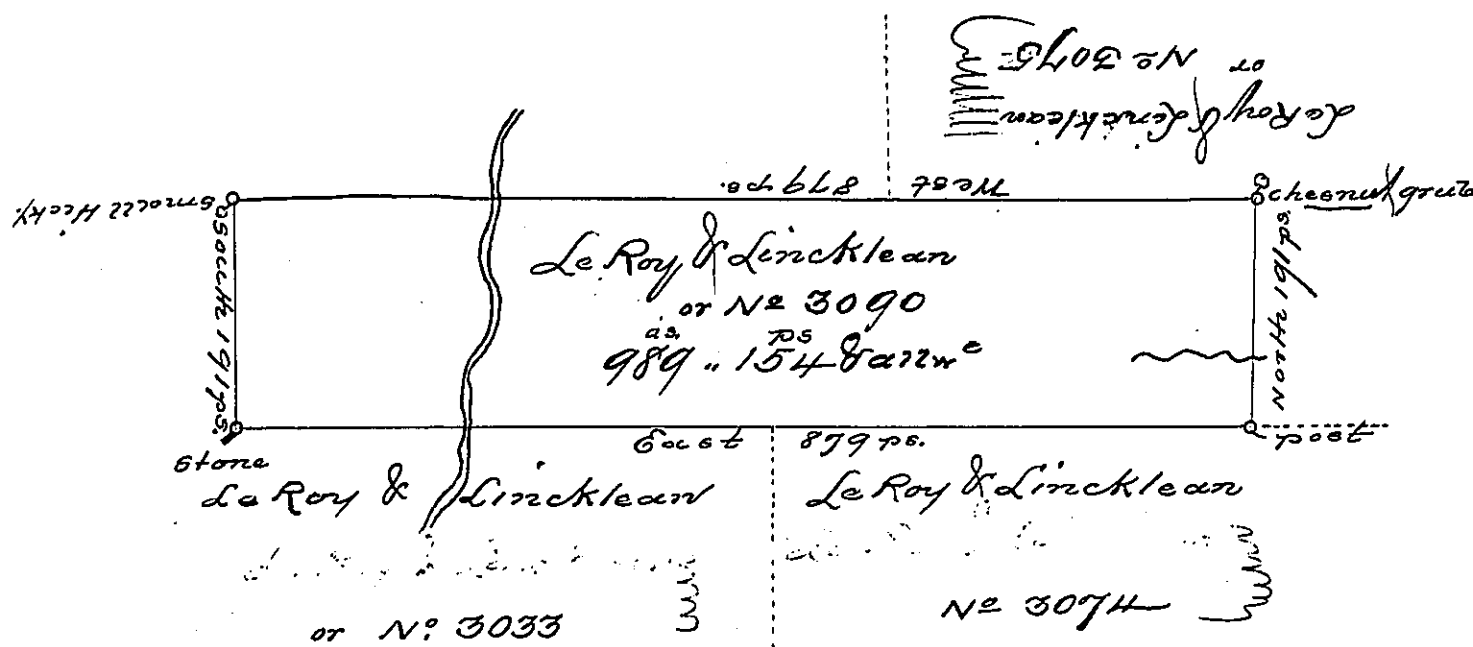 Le Roy & Lincklean
or Nº 3075
West 879 ps.
Small Hicky.
chesnut grub
South 191 ps.
North 191 ps.
Le Roy & Lincklean
or Nº 3090
as. ps
989 " 154 & allwᵉ
East 879 ps.
Stone
post
Le Roy & Lincklean
or Nº 3033
Le Roy & Lincklean
Nº 3074